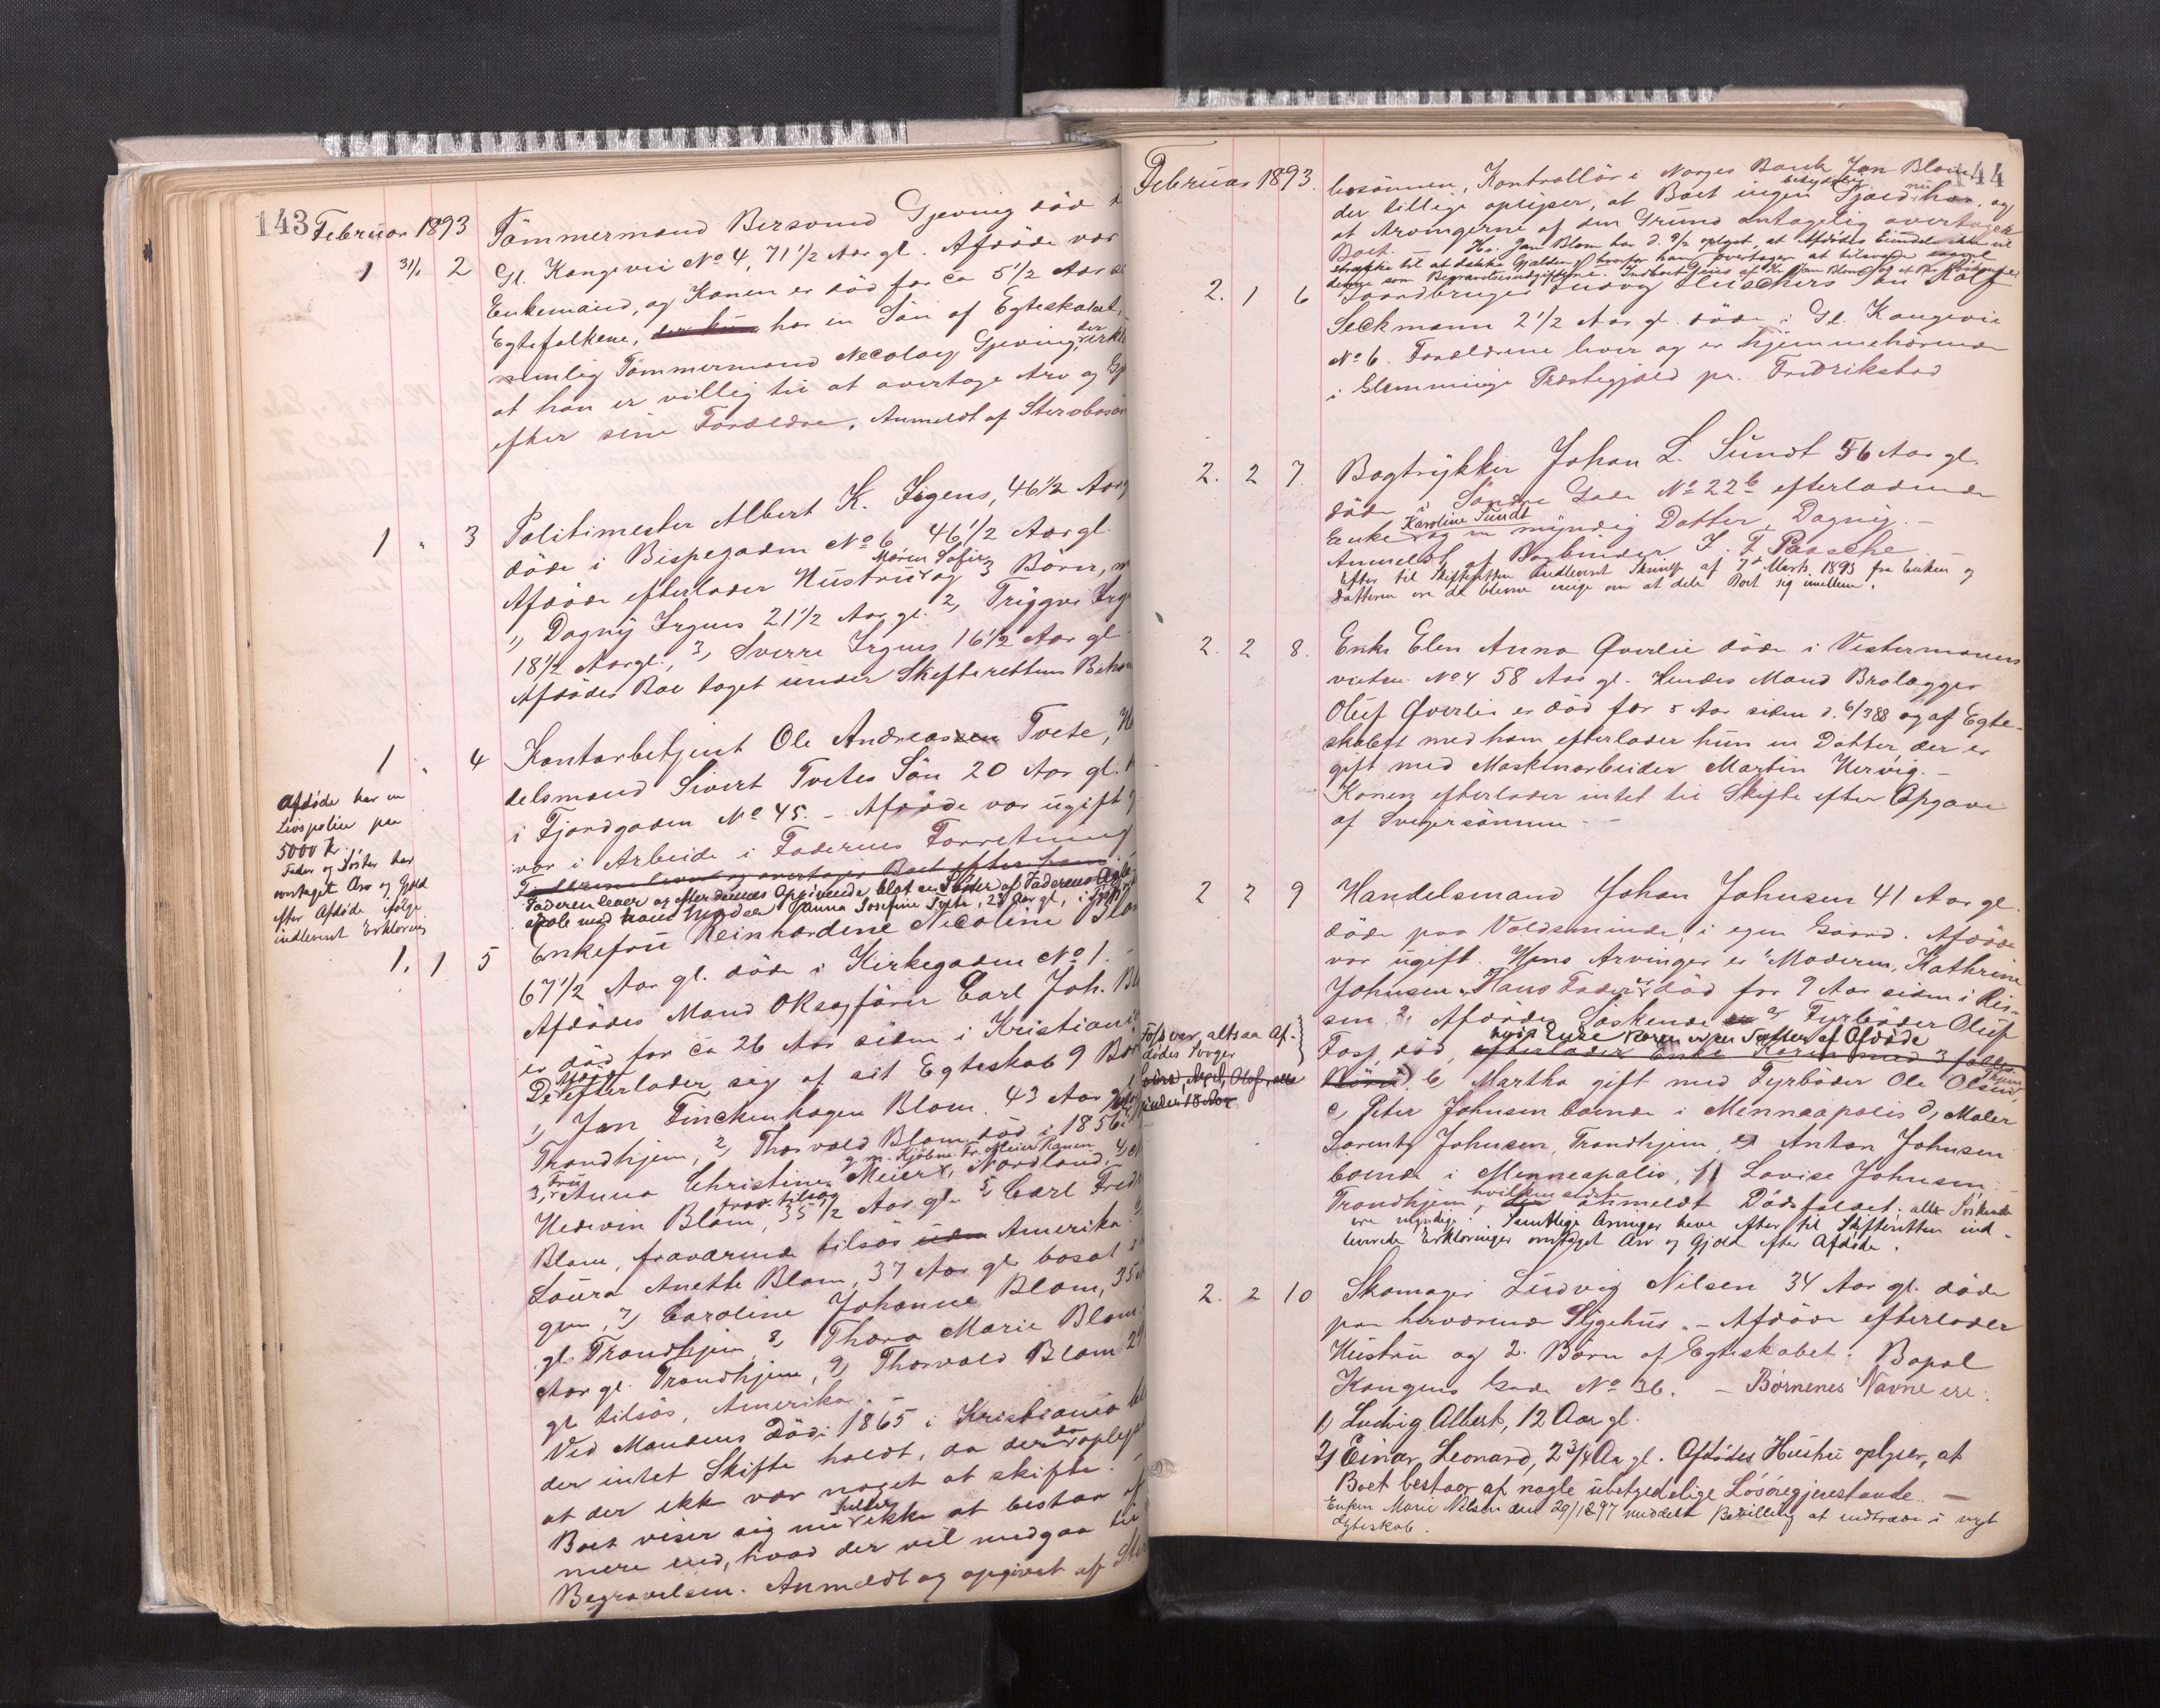 143 Februar 1893
1 31/1 2 Tömmermand Bersvend Gjeving död
Gl. Kongevei No 4, 71 1/2 Aar gl. Afdöde var
Enkemand, og Konen er död for ca 5 1/2 Aar
Egtefolkene, har en Sön af Egteskabet,
nemlig Tömmermand Necolay Gjeving, der
at han er villig til at overtage Arv og
efter sine Forældre. Anmeldt af
1 " 3 Politimester Albert K. Irgens, 46 1/2
döde i Bispegaden No 6 46 1/2 Aar gl.
Afdöde efterlader Hustru Maren Sofie og 3 Börn,
1) Dagny Irgens 21 1/2 Aar gl. 2) Tryggve
18 1/2 Aar gl., 3) Sverre Irgens 16 1/2 Aar gl.
Afdödes Bo taget under Skifterettens
1 " 4 Kontorbetjent Ole Andreas Tvete,
delsmand Sivert Tvetes Sön 20 Aar gl.
i Fjordgaden No 45. - Afdöde var ugift
var i Arbeide i Faderens Forretning
Faderen lever og efter dennes Opgivende blot en Söster af Faderens
skab med hans Moder Janna Josefine Tvete, 28 Aar gl.,
Afdöde har en
Livspolice paa
5000 Kr.
Fader og Söster har
overtaget Arv og Gjæld
efter Afdöde ifölge
indleveret Erklæring
1. 1 5 Enkefru Reinhardine Nicoline
67 1/2 Aar gl. döde i Kirkegaden No 1.
Afdödes Mand Carl Joh.
er död for ca 26 Aar siden i
Afdöde efterlader sig af sit Egteskab 9
1) Jan Finckenhagen Blom. 43 Aar
Trondhjem, 2) Thorvald Blom död i 1856
3) Fru Anna Christine Meier, Nordland,
Hedevin Blom, 35 1/2 Aar gl. 5) Carl
Blom, fraværende tilsös Amerika
Laura Anette Blom, 37 Aar gl. bosat
gen, 7) Caroline Johanne Blom, 35
gl. Trondhjem 8) Thora Marie Blom
Aar gl. Trondhjem, 9) Thorvald Blom
gl. tilsös, Amerika. -
Ved Mandens Död i 1865 i Kristiania
der intet Skifte holdt, da der da
at der ikke var noget at skifte. -
Boet viser sig nu heller ikke at bestaa af
mere end, hvad der vil medgaa til
Begravelsen. Anmeldt og opgivet af
Februar 1893. 144
besönnen, Kontrollör i Norges Bank Jan Blom,
der tillige oplyser, at Boet ingen betydelig Gjæld har, og
at Arvingerne af den Grund antagelig overtager
Boet. Hr. Jan Blom har d. 9/2 oplyst, at Afdödes Eiendele ikke vil
strække til at dække Gjælden
2. 1 6 Gaardbruger Ludvig Sön Rolf
Seckmann 2 1/2 Aar gl. döde i Gl. Kongevei
No 6. Forældrene lever og er hjemmehörende
i Glemminge Præstegjæld pr. Fredrikstad
2. 2 7. Bogtrykker Johan L. Sundt 56 Aar gl.
döde i Söndre Gade No 22 b efterladende
Enke Karoline Sundt og en myndig Datter, Dagny. -
Anmeldt af Bogbinder J. F. Paasche. -
Efter til Skifteretten indleveret Skrivelse af 7de Marts 1893 fra Enken og
Datteren ere de blevne enige om at dele Boet sig imellem.
2. 2 8. Enke Elen Anna Øverlie döde i Vestermanns
vieten No 4 58 Aar gl. Hendes Mand Brolægger
Oluf Øverlie er död for 5 Aar siden d. 6/3 88 og af Egte-
skabet med ham efterlader hun en Datter, der er
gift med Maskinarbeider Martin Hervig. -
Konen efterlader intet til Skifte efter Opgave
af Svigersönnen. -
2 2 9 Handelsmand Johan Johnsen 41 Aar gl.
döde paa Voldsminde, i egen Gaard. Afdöde
var ugift. Hans Arvinger er 1) Moderen, Kathrine
Johnsen. Hans Fader er död for 9 Aar siden i Ris-
sen 2) Afdödes Söskende a) Fyrböder Oluf
Fosf död, hvis Enke Karen er en Söster af Afdöde
efterlader Enke Karen med 3
Börn, b) Martha gift med Fyrböder Ole Olsen,
c) Peter Johnsen boende i Menneapolis d) Maler
Lorents Johnsen, Trondhjem, e) Anton Johnsen
boende i Menneapolis, f) Lovise Johnsen,
Trondhjem, hvilken sidste anmeldt Dödsfaldet. alle Söskende
ere myndige. Samtlige Arvinger have efter til Skifteretten ind-
leverede Erklæringer overtaget Arv og Gjæld efter Afdöde.
Fosf var altsaa Af-
dödes Svoger
under 18 Aar
2. 2 10 Skomager Ludvig Nilsen 34 Aar gl. döde
paa herværende Sygehus. - Afdöde efterlader
Hustru og 2 Börn af Egteskabet. Bopæl
Kongens Gade No 36. - Börnenes Navne ere:
1) Ludvig Albert, 12 Aar gl.
2) Einar Leonard, 2 3/4 Aar gl. Afdödes Hustru oplyser, at
Boet bestaar af nogle ubetydelige Lösöregjenstande. -
Enken Marie Nilsen den 29/1 97 meddelt Bevilling at indtræde i nyt
Egteskab.